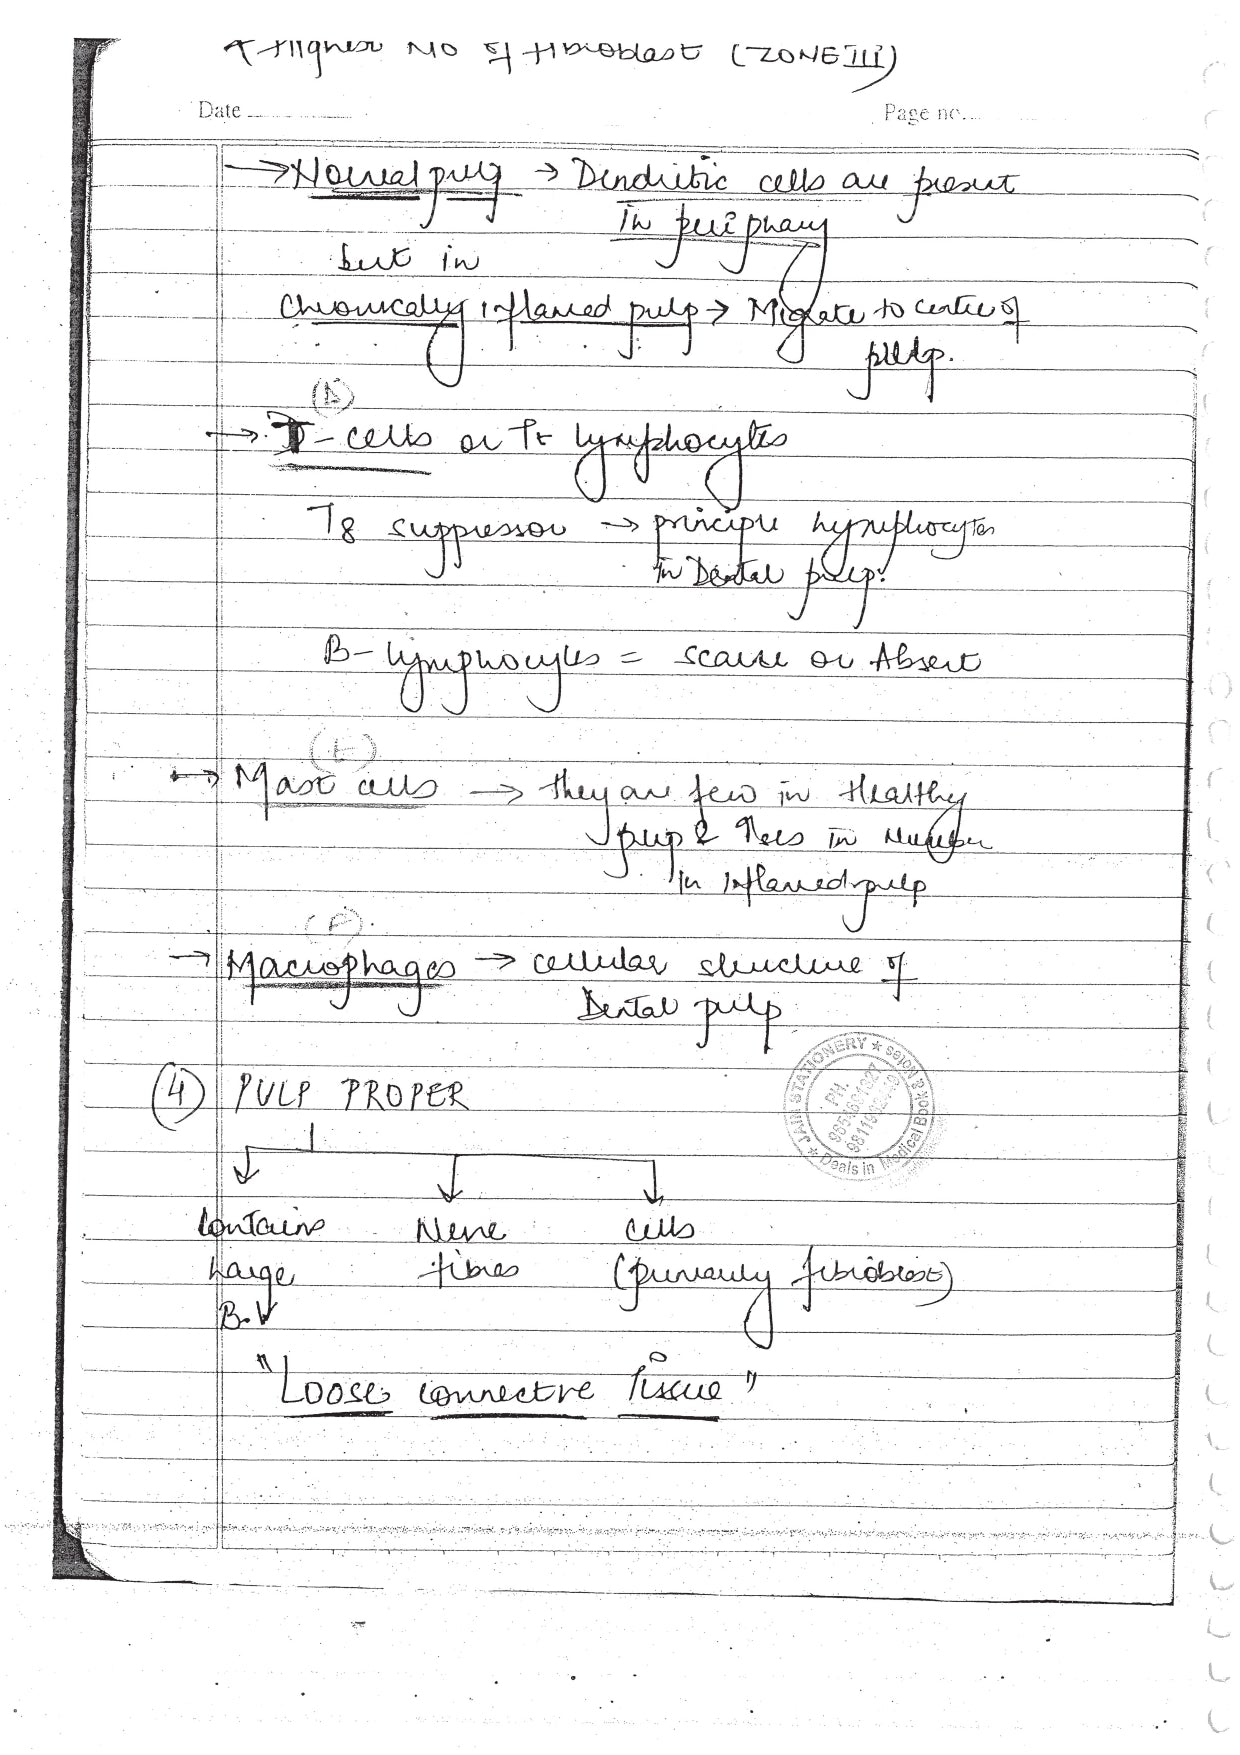 * Highest No of fibroblast (ZONE III)
Date
Page no.
→ Normal pulp → Dendritic cells are present
in periphary
but in
Chronically inflamed pulp → Migrate to centre of
pulp.
(D)
→ T-cells or T lymphocytes
T8 suppressor → principle lymphocytes
in Dental pulp.
B-lymphocytes = scarse or Absent
(E)
→ Mast cells → they are few in Healthy
pulp & ↑ses in Number
in inflamed pulp
(F)
→ Macrophages → cellular structure of
Dental pulp
JAIN STATIONERY ★
PH.
Deals in Medical Book & Notes
(4) PULP PROPER
Contains Nerve cells
Large fibres (primarily fibroblast)
B.V
"Loose connective Tissue"